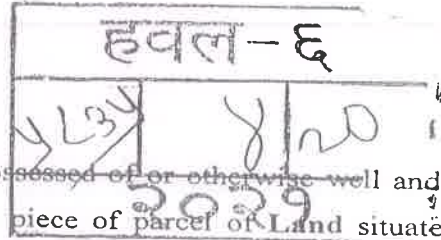 हवल - ६
५८३५ ४ २०
ossessed of or otherwise well and
२०२१
piece of parcel of Land situate